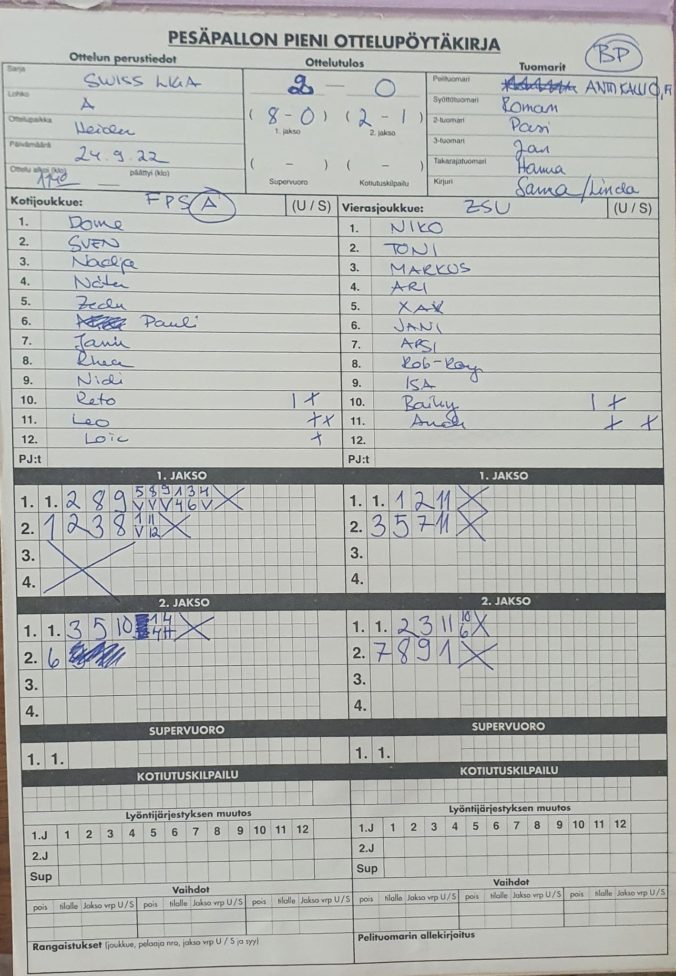 PESÄPALLON PIENI OTTELUPÖYTÄKIRJA
BP
Ottelun perustiedot
Sarja SWISS LIGA
Lohko A
Ottelupaikka Heiden
Päivämäärä 24.9.22
Ottelu alkoi (klo) 1140 päättyi (klo)
Ottelutulos
2 – 0
(8-0) (2-1)
1. jakso 2. jakso
( - ) ( - )
Supervuoro Kotiutuskilpailu
Tuomarit
Pelituomari ANTTI KALLIO, FI
Syöttötuomari Roman
2-tuomari Pasi
3-tuomari Jan
Takarajatuomari Hanna
Kirjuri Sama/Linda
Kotijoukkue: FPS A (U / S)
1. Dome
2. SVEN
3. Nadja
4. Näter
5. Zedu
6. Pauli
7. Janu
8. Rhea
9. Nidi
10. Reto 1 +
11. Leo ++
12. Loic +
PJ:t
Vierasjoukkue: ZSU (U / S)
1. NIKO
2. TONI
3. MARKUS
4. ARI
5. XAV
6. JANI
7. ARSI
8. Rob-Roy
9. ISA
10. Bailey 1 +
11. Andi + +
12.
PJ:t
1. JAKSO
1. 1. 2 8 9 5 8 9 1 3 4
V V V 4 6 V
2. 1 2 3 8 1 11
V 12
3.
4.
1. JAKSO
1. 1. 1 2 11
2. 3 5 7 11
3.
4.
2. JAKSO
1. 1. 3 5 10 1 4
4 H
2. 6
3.
4.
2. JAKSO
1. 1. 2 3 11 10
6
2. 7 8 9 1
3.
4.
SUPERVUORO
1. 1.
SUPERVUORO
1. 1.
KOTIUTUSKILPAILU
KOTIUTUSKILPAILU
Lyöntijärjestyksen muutos
1.J 1 2 3 4 5 6 7 8 9 10 11 12
2.J
Sup
Lyöntijärjestyksen muutos
1.J 1 2 3 4 5 6 7 8 9 10 11 12
2.J
Sup
Vaihdot
pois tilalle Jakso vrp U / S pois tilalle Jakso vrp U / S pois tilalle Jakso vrp U / S
Vaihdot
pois tilalle Jakso vrp U / S pois tilalle Jakso vrp U / S pois tilalle Jakso vrp U / S
Rangaistukset (joukkue, pelaaja nro, jakso vrp U / S ja syy)
Pelituomarin allekirjoitus